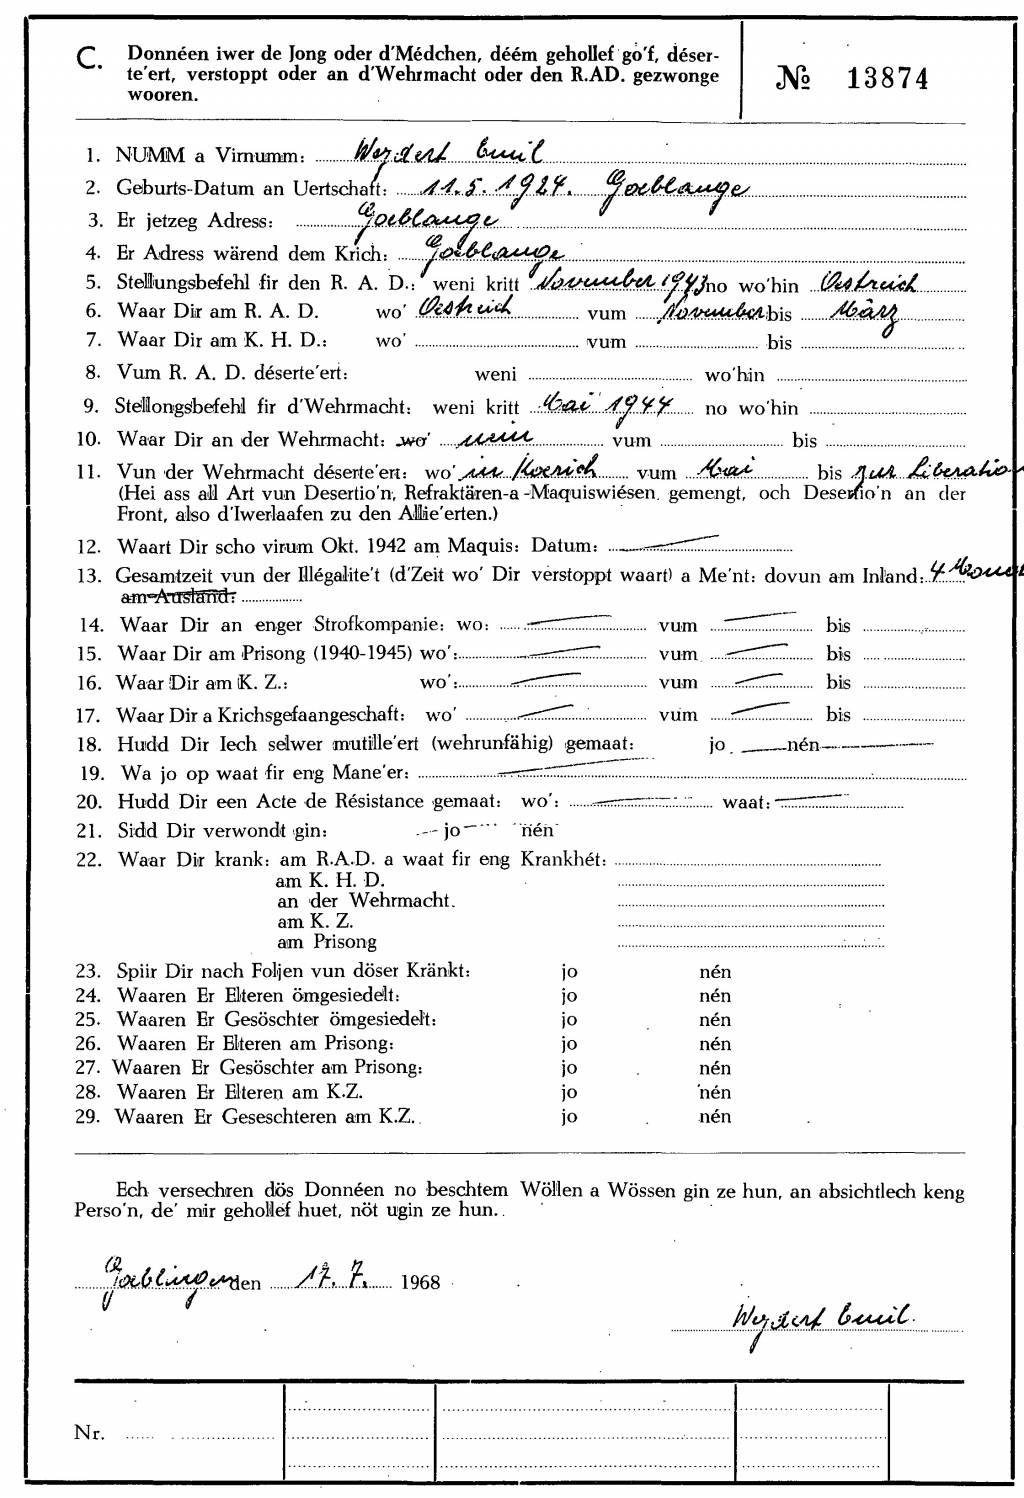 C. Donnéen iwer de Jong oder d'Médchen, déém gehollef go'f, déser-
te'ert, verstoppt oder an d'Wehrmacht oder den R.AD. gezwonge
wooren.
№ 13874
1. NUMM a Virnumm: Weydert Emil
2. Geburts-Datum an Uertschaft: 11.5.1924. Goeblange
3. Er jetzeg Adress: Goeblange
4. Er Adress wärend dem Krich: Goeblange
5. Stellungsbefehl fir den R. A. D.: weni kritt November 1943 no wo'hin Oestreich
6. Waar Dir am R. A. D. wo' Oestreich vum November bis März
7. Waar Dir am K. H. D.: wo' vum bis
8. Vum R. A. D. déserte'ert: weni wo'hin
9. Stellongsbefehl fir d'Wehrmacht: weni kritt Mai 1944 no wo'hin
10. Waar Dir an der Wehrmacht: wo' nein vum bis
11. Vun der Wehrmacht déserte'ert: wo' in Koerich vum Mai bis zur Liberatio
(Hei ass all Art vun Desertio'n, Refraktären-a-Maquiswiésen gemengt, och Desertio'n an der
Front, also d'Iwerlaafen zu den Allie'erten.)
12. Waart Dir scho virum Okt. 1942 am Maquis: Datum:
13. Gesamtzeit vun der Illégalite't (d'Zeit wo' Dir verstoppt waart) a Me'nt: dovun am Inland: 4 Monat
am Ausland:
14. Waar Dir an enger Strofkompanie: wo: vum bis
15. Waar Dir am Prisong (1940-1945) wo': vum bis
16. Waar Dir am K. Z.: wo': vum bis
17. Waar Dir a Krichsgefaangeschaft: wo' vum bis
18. Hudd Dir Iech selwer mutille'ert (wehrunfähig) gemaat: jo nén
19. Wa jo op waat fir eng Mane'er:
20. Hudd Dir een Acte de Résistance gemaat: wo': waat:
21. Sidd Dir verwondt gin: jo nén
22. Waar Dir krank: am R.A.D. a waat fir eng Krankhét:
am K. H. D.
an der Wehrmacht.
am K. Z.
am Prisong
23. Spiir Dir nach Foljen vun döser Kränkt: jo nén
24. Waaren Er Elteren ömgesiedelt: jo nén
25. Waaren Er Gesöschter ömgesiedelt: jo nén
26. Waaren Er Elteren am Prisong: jo nén
27. Waaren Er Gesöschter am Prisong: jo nén
28. Waaren Er Elteren am K.Z. jo nén
29. Waaren Er Geseschteren am K.Z. jo nén
Ech versechren dös Donnéen no beschtem Wöllen a Wössen gin ze hun, an absichtlech keng
Perso'n, de' mir gehollef huet, nöt ugin ze hun.
Goeblingen den 17. 7. 1968
Weydert Emil.
Nr.